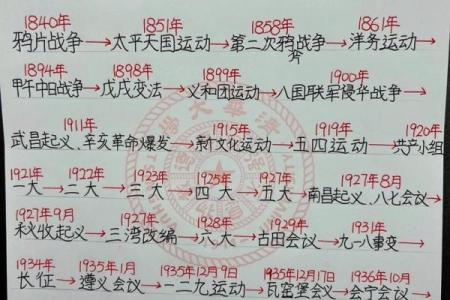 1840年 1851年 1858年 1861年
鸦片战争→太平天国运动→第二次鸦片战争→洋务运动→
1894年 1898年 1899年 1900年
甲午中日战争→戊戌变法→义和团运动→八国联军侵华战争→
1911年 1915年 1919年 1920年
武昌起义、辛亥革命爆发→新文化运动→五四运动→共产小组
1921年 1922年 1923年 1925年 1927年 1927年8月
一大→二大→三大→四大→五大→南昌起义、八七会议→
1927年9月 1927年 1928年 1929年 1931年
秋收起义→三湾改编→六大→古田会议→九一八事变→
1934年 1935年1月 1935年12月9日 1935年12月17日 1936年10月
长征→遵义会议→一二九运动→瓦窑堡会议→会宁会议→